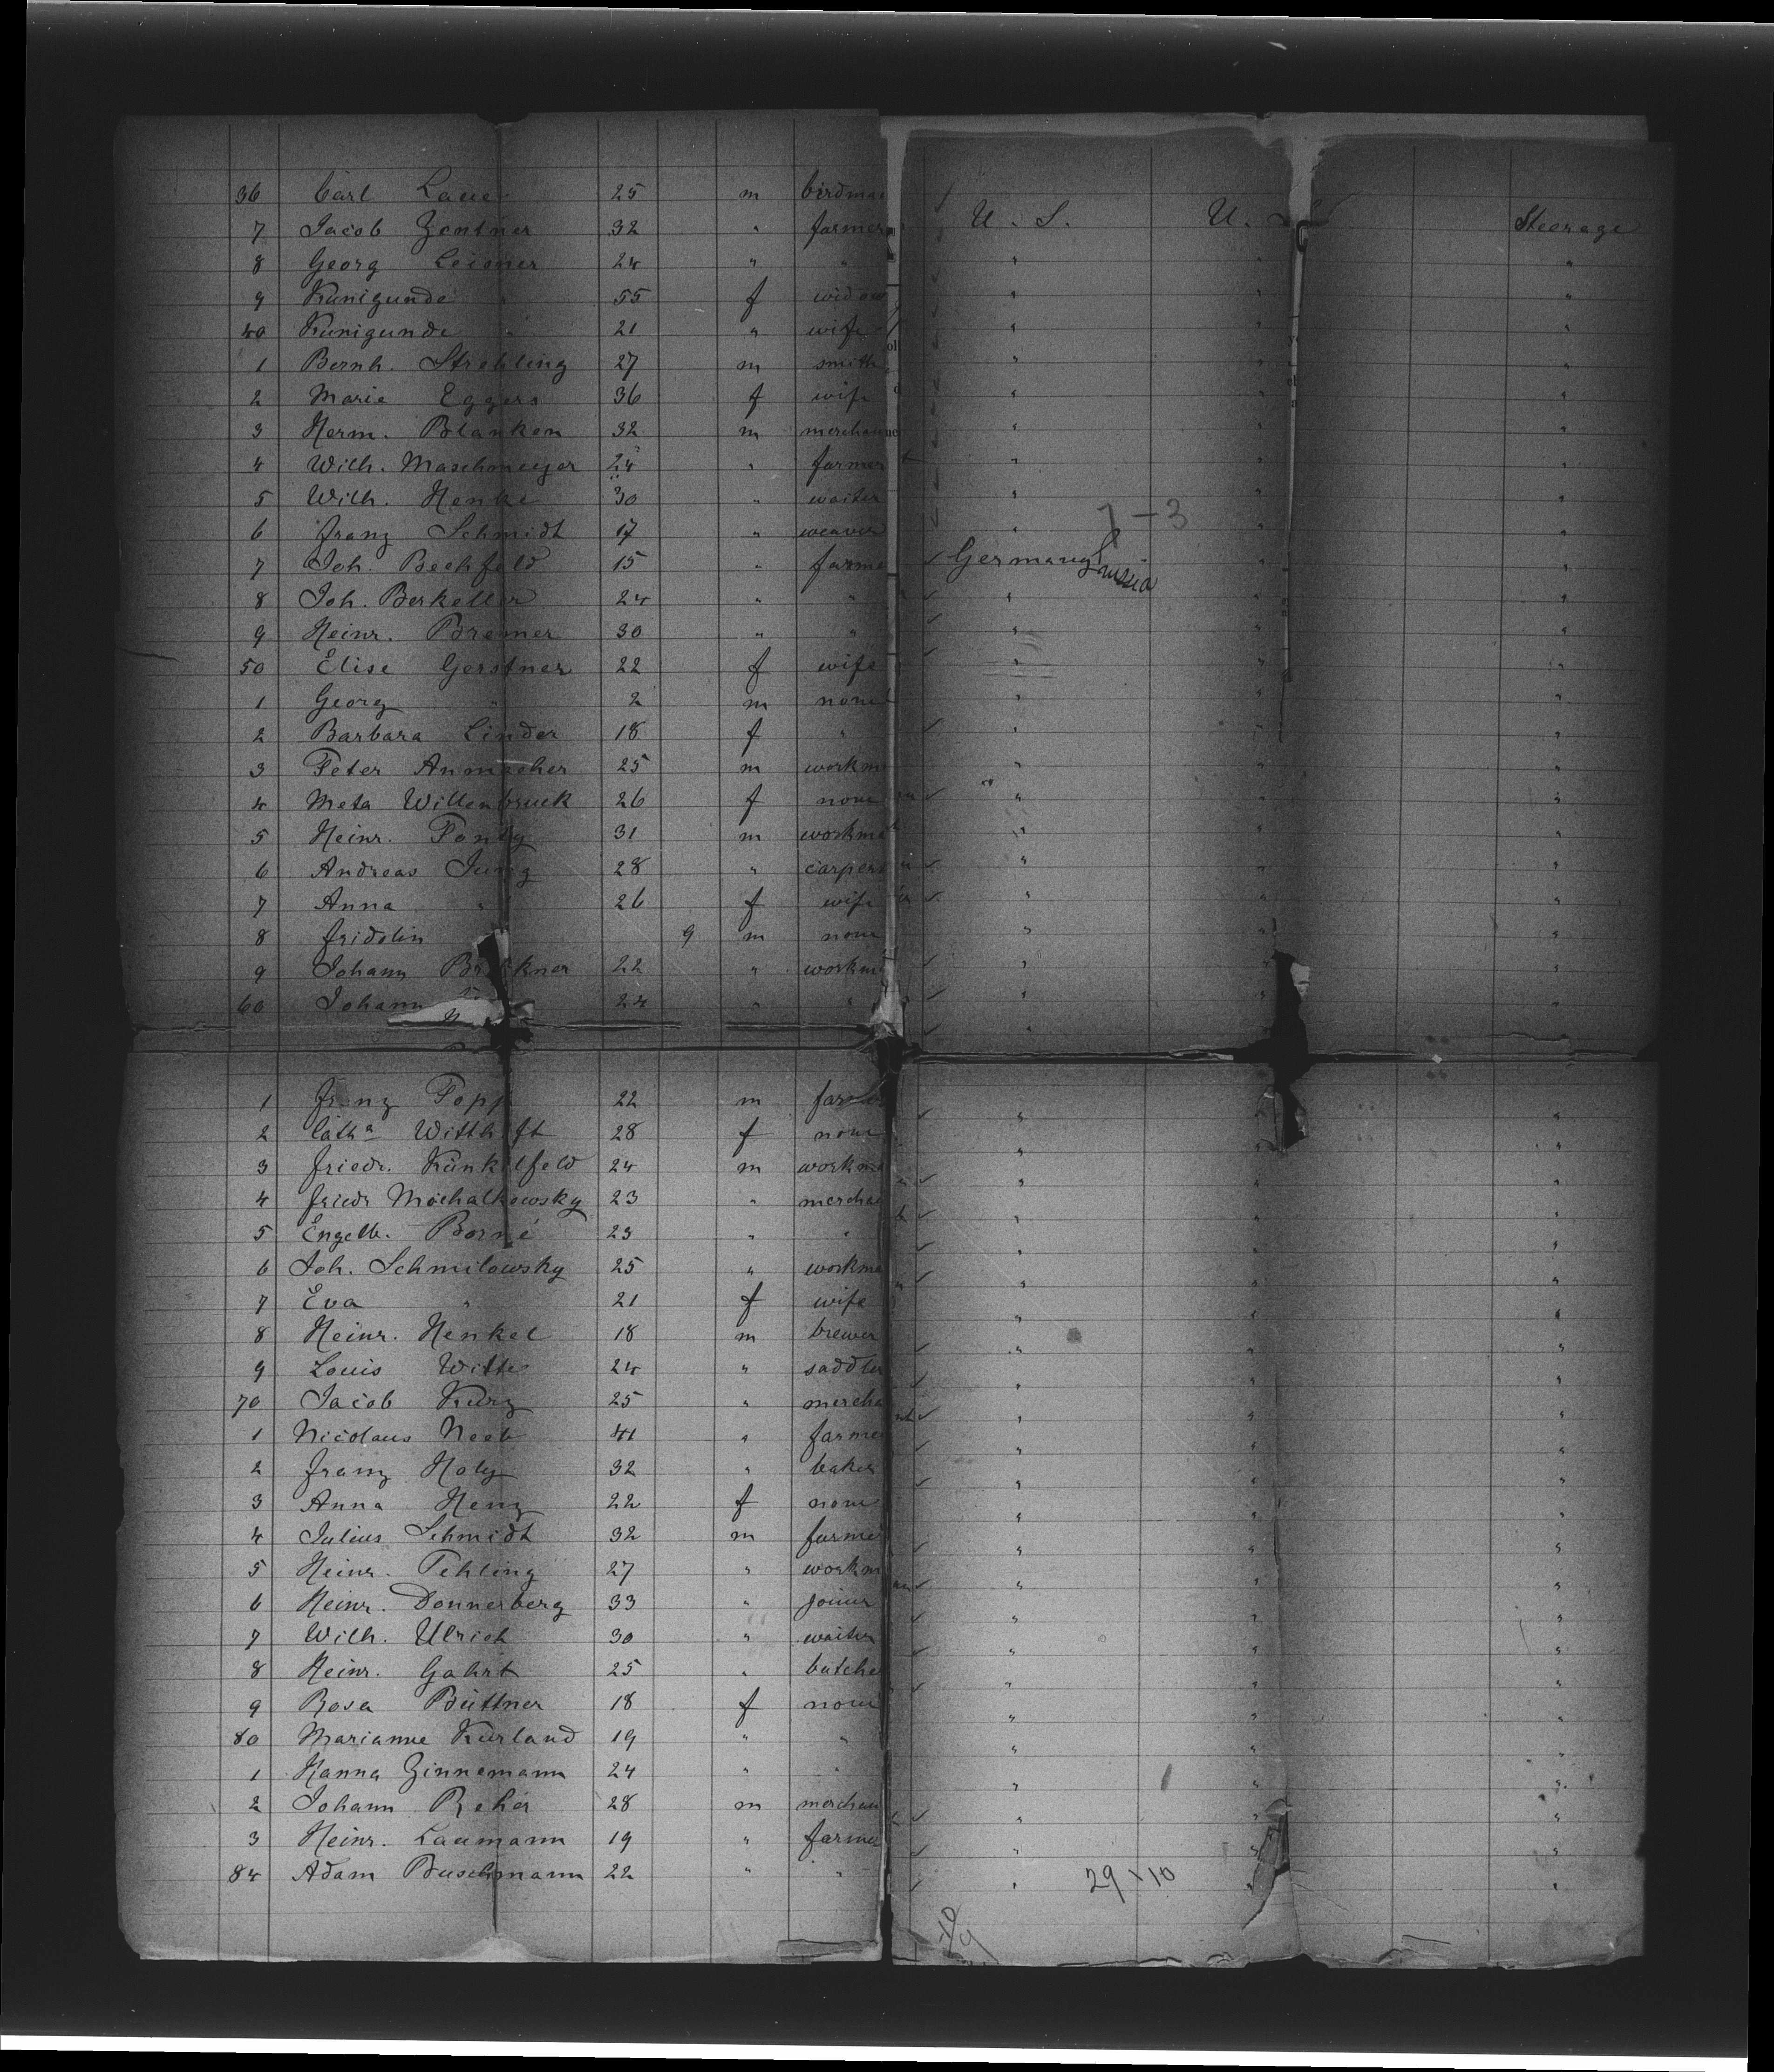 36 Carl Lauer 25 m birdman U. S. U. S. Steerage
7 Jacob Zentner 32 " farmer " " "
8 Georg Leisner 24 " " " " "
9 Kunigunde " 55 f widow " " "
40 Kunigunde " 21 " wife " " "
1 Bernh. Strehling 27 m smith " " "
2 Marie Eggers 36 f wife " " "
3 Herm. Blanken 32 m merchan " " "
4 Wilh. Maschmeyer 24 " farmer " " "
5 Wilh. Henke 30 " waiter " " "
6 Franz Schmidt 17 " weaver " 7-3 " "
7 Joh. Bechfeld 15 " farme Germany Prussia " "
8 Joh. Berkeller 24 " " " " "
9 Heinr. Bremer 30 " " " " "
50 Elise Gerstner 22 f wife " " "
1 Georg " 2 m none " " "
2 Barbara Linder 18 f " " " "
3 Peter Anmacher 25 m workm " " "
4 Meta Willenbruck 26 f none " " "
5 Heinr. 31 m workma " " "
6 Andreas Jung 28 " carpen " " "
7 Anna " 26 f wife " " "
8 Fridolin 9 m none " " "
9 Johann 22 " workm " " "
60 Johann 24 " " " " "
1 Franz Popp 22 m farmer " " "
2 Catha Witth ft 28 f none " " "
3 Friedr. Kunkelfeld 24 m workma " " "
4 Friedr Mochalkowsky 23 " merchan " " "
5 Engelb. Borné 23 " " " " "
6 Joh. Schmilowsky 25 " workma " " "
7 Eva " 21 f wife " " "
8 Heinr. Henkel 18 m brewer " " "
9 Louis Witte 24 " saddler " " "
70 Jacob Kurz 25 " mercha nt " " "
1 Nicolaus Neeb 41 " farmer " " "
2 Franz Holy 32 " baker " " "
3 Anna Henz 22 f none " " "
4 Julius Schmidt 32 m farmer " " "
5 Heinr. Fehling 27 " workm an " " "
6 Heinr. Donnerberg 33 " joiner " " "
7 Wilh. Ulrich 30 " waiter " " "
8 Heinr. Gahrt 25 " butche " " "
9 Rosa Büttner 18 f none " " "
80 Marianne Kurland 19 " " " " "
1 Hanna Zinnemann 24 " " " " "
2 Johann Reher 28 m merchan t " " "
3 Heinr. Laumann 19 " farmer " " "
84 Adam Buschmann 22 " " " 29 10 " "